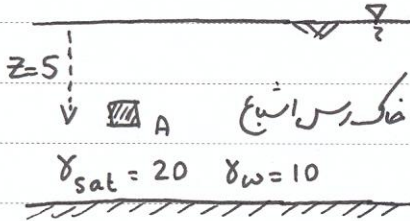 Z=5
A
خاک رس اشباع
γsat = 20 γw = 10